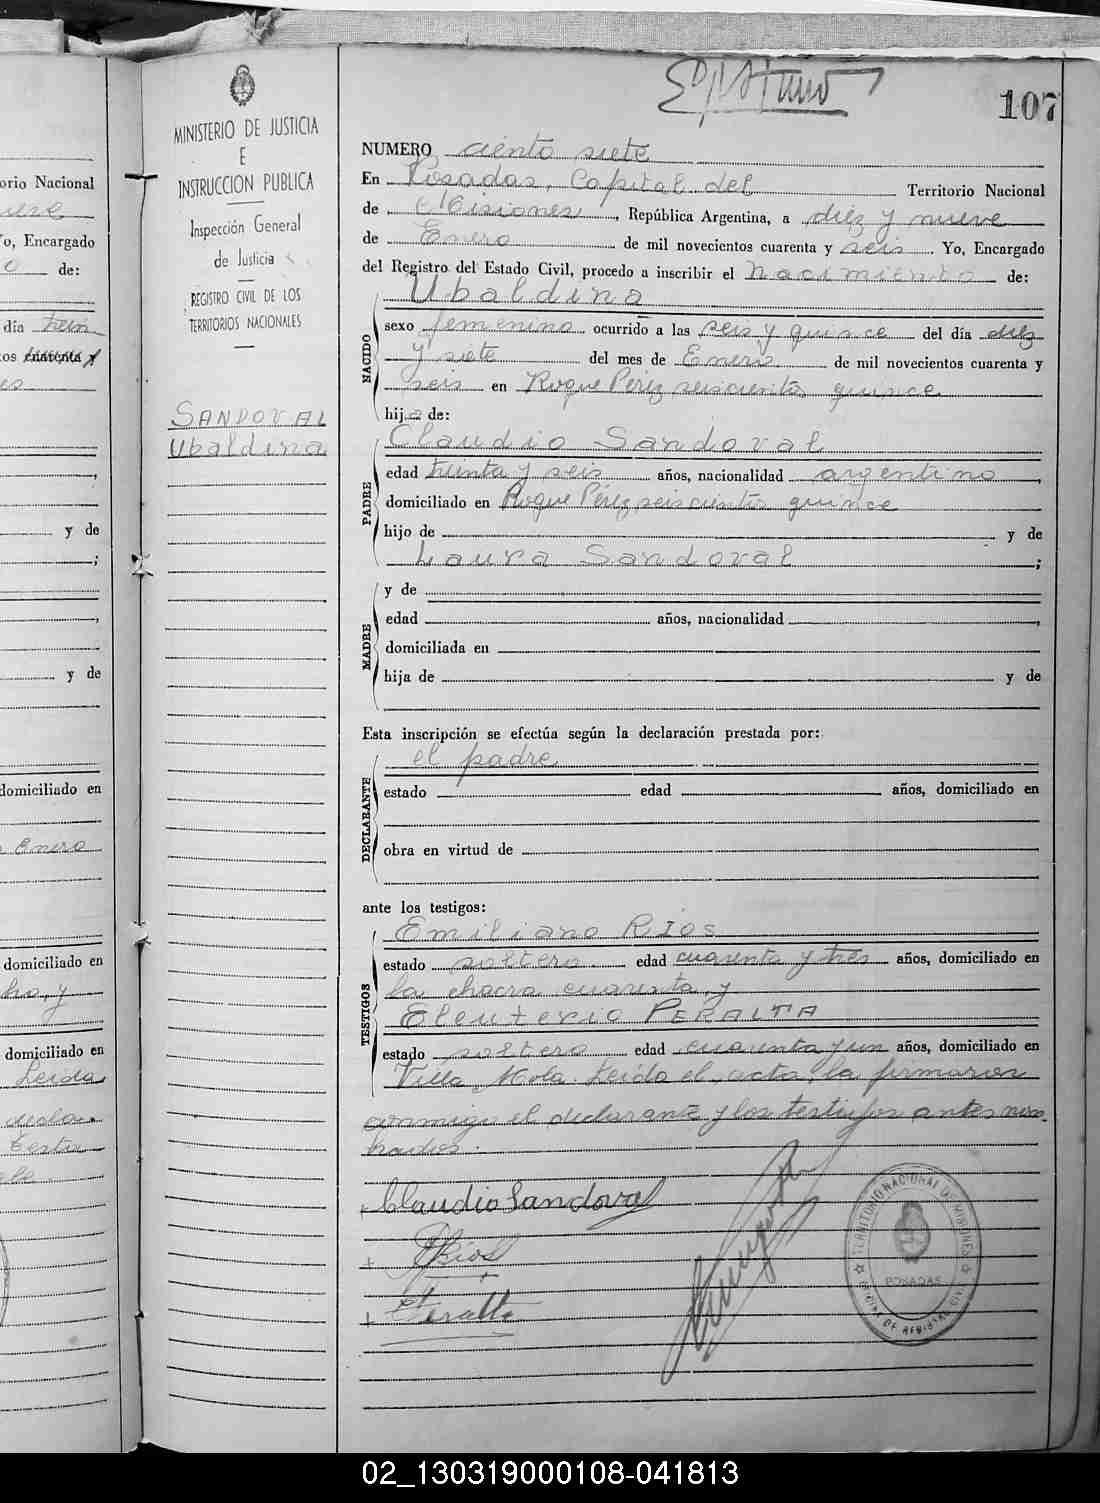 107
MINISTERIO DE JUSTICIA
E
INSTRUCCION PUBLICA
Inspección General
de Justicia
REGISTRO CIVIL DE LOS
TERRITORIOS NACIONALES
SANDOVAL
Ubaldina
orio Nacional
o, Encargado
o de:
día
tos cuarenta y
y de
;
,
y de
domiciliado en
Enero
domiciliado en
domiciliado en
Leida
NUMERO ciento siete
En Posadas, Capital del Territorio Nacional
de Misiones, República Argentina, a diez y nueve
de Enero de mil novecientos cuarenta y seis. Yo, Encargado
del Registro del Estado Civil, procedo a inscribir el nacimiento de:
Ubaldina
NACIDO
sexo femenino ocurrido a las seis y quince del día diez
y siete del mes de Enero de mil novecientos cuarenta y
seis en Roque Pérez seiscientos quince
hija de:
Claudio Sandoval
PADRE
edad treinta y seis años, nacionalidad argentino,
domiciliado en Roque Pérez seiscientos quince
hijo de y de
Laura Sandoval ;
MADRE
y de
edad años, nacionalidad ,
domiciliada en
hija de y de
Esta inscripción se efectúa según la declaración prestada por:
el padre
DECLARANTE
estado edad años, domiciliado en
obra en virtud de
ante los testigos:
TESTIGOS
Emiliano RIOS
estado soltero edad cuarenta y tres años, domiciliado en
la chacra cuarenta, y
Eleuterio PERALTA
estado soltero edad cuarenta y un años, domiciliado en
Villa Mola. Leída el acta, la firmaron
conmigo el declarante y los testigos antes nom-
brados.
Claudio Sandoval
+ Rios
+ Peralta
TERRITORIO NACIONAL DE MISIONES
POSADAS
OFICINA DE REGISTRO CIVIL
02_130319000108-041813